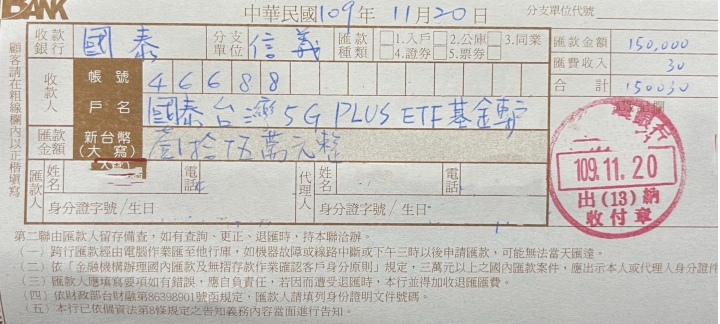 BANK
中華民國109年 11月20日
分支單位代號
顧客請在粗線欄內以正楷填寫
收款銀行 國泰 分支單位 信義 匯款種類 □1.入戶 □2.公庫 □3.同業 □4.證券 □5.票券 匯款金額 150,000
匯費收入 30
收款人 帳號 46688 合計 150030
戶名 國泰台灣5G PLUS ETF基金專戶
匯款金額 新台幣(大寫) 壹拾伍萬元整
109.11.20
出(13)納
收付章
匯款人 姓名 電話 代理人 姓名 電話
身分證字號/生日 身分證字號/生日
第二聯由匯款人留存備查,如有查詢、更正、退匯時,持本聯洽辦。
(一)跨行匯款經由電腦作業匯至他行庫,如有機器故障或線路中斷或下午三時以後申請匯款,可能無法當天匯達。
(二)依「金融機構辦理國內匯款及無摺存款作業確認客戶身分原則」規定,三萬元以上之國內匯款案件,應出示本人或代理人身分證件
(三)匯款人應填寫要項如有錯誤,應自負責任,若因而遭受退匯時,本行並得加收退匯匯費。
(四)依財政部台財融第86398901號函規定,匯款人請填列身份證明文件號碼。
(五)本行已依個資法第8條規定之告知義務內容當面進行告知。